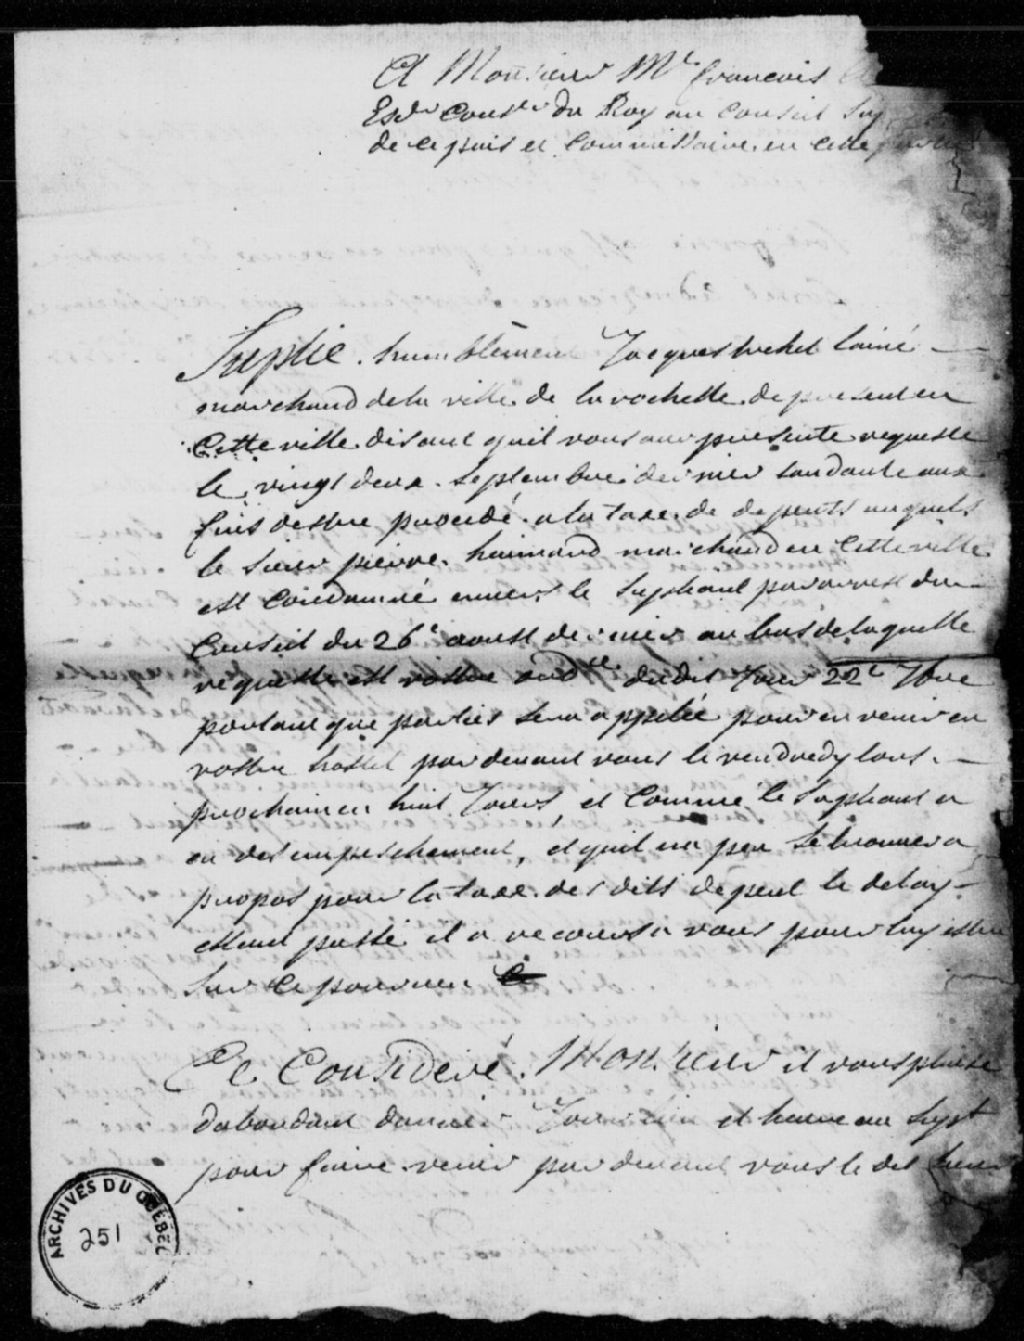 A Monsieur Mr francois
Escr Consr du Roy au Conseil Sup
de ce pais et Commissaire en cette partie
Suplie humblement Jacques laine
marchand de la ville de la rochelle de present en
Cette ville disant quil vous auroit presenté requeste
le vingt deux Septembre dernier tendante aux
fins destre procedé a la taxe de depents auquels
le Sieur pierre haimard marchand en Cette ville
est Condamné envers le Supliant par arrest du
Conseil du 26e aoust dernier au bas de laquelle
requeste est vostre ordce dudit Jour 22e 7bre
portant que parties Sera appellée pour en venir en
vostre hostel par devant vous le vendredy lors
prochain en huit Jours, et Comme le Supliant a
eu des empeschement, et quil na peu Se trouver a
propos pour la taxe des dits depent le delay
estant passé il a recours a vous pour luy estre
Sur ce pourveu
Ce Consideré Monsieur il vous plaise
dabondant donner Jour lieu et heure au Supt
pour faire venir par devant vous le dit Sieur
ARCHIVES DU QUÉBEC
251